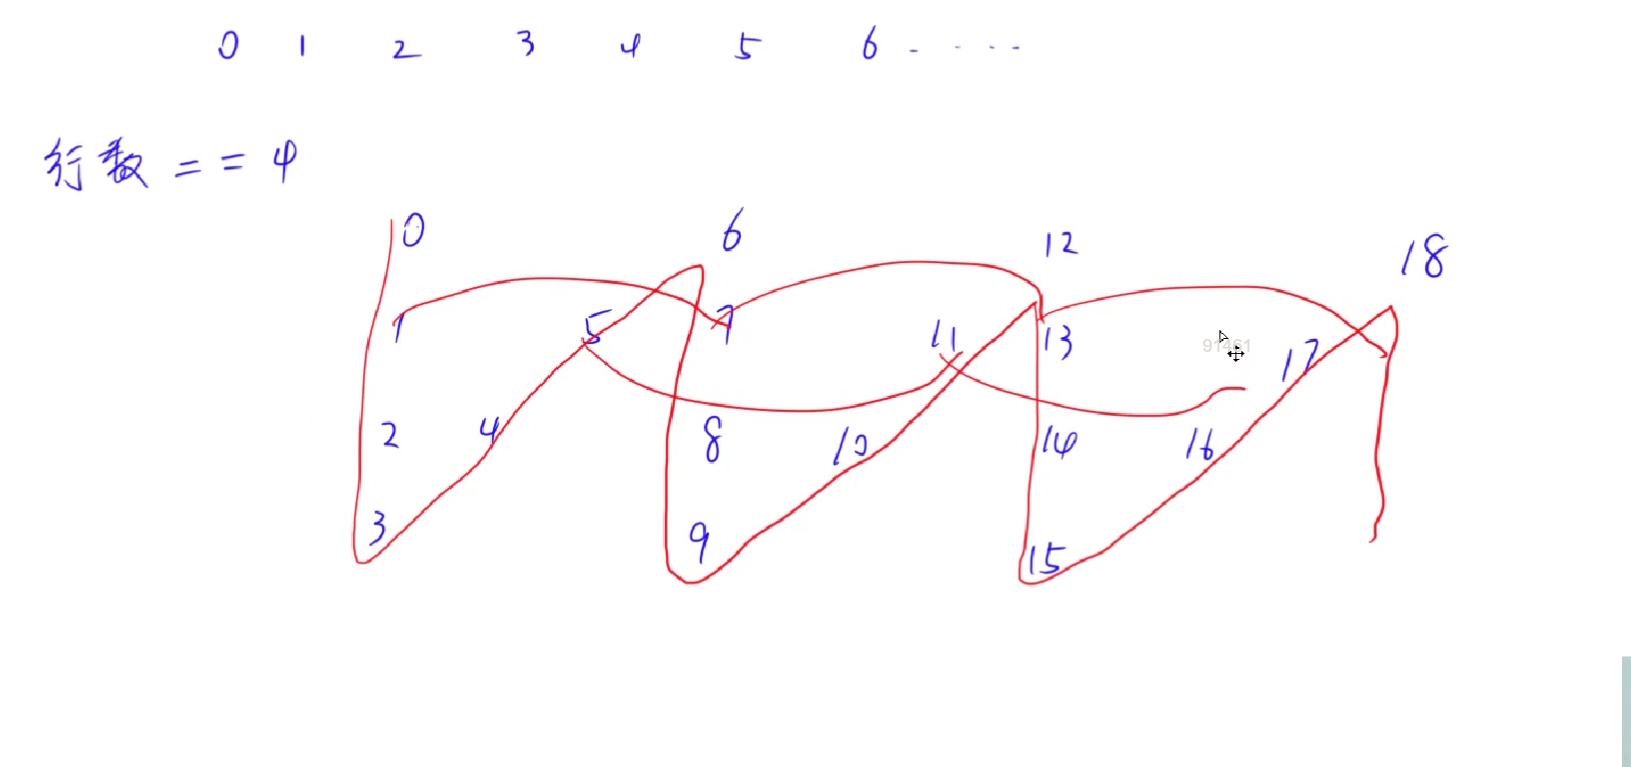 0 1 2 3 4 5 6 ....
行数 == 4
0 6 12 18
1 5 7 11 13 17
2 4 8 10 14 16
3 9 15
91461